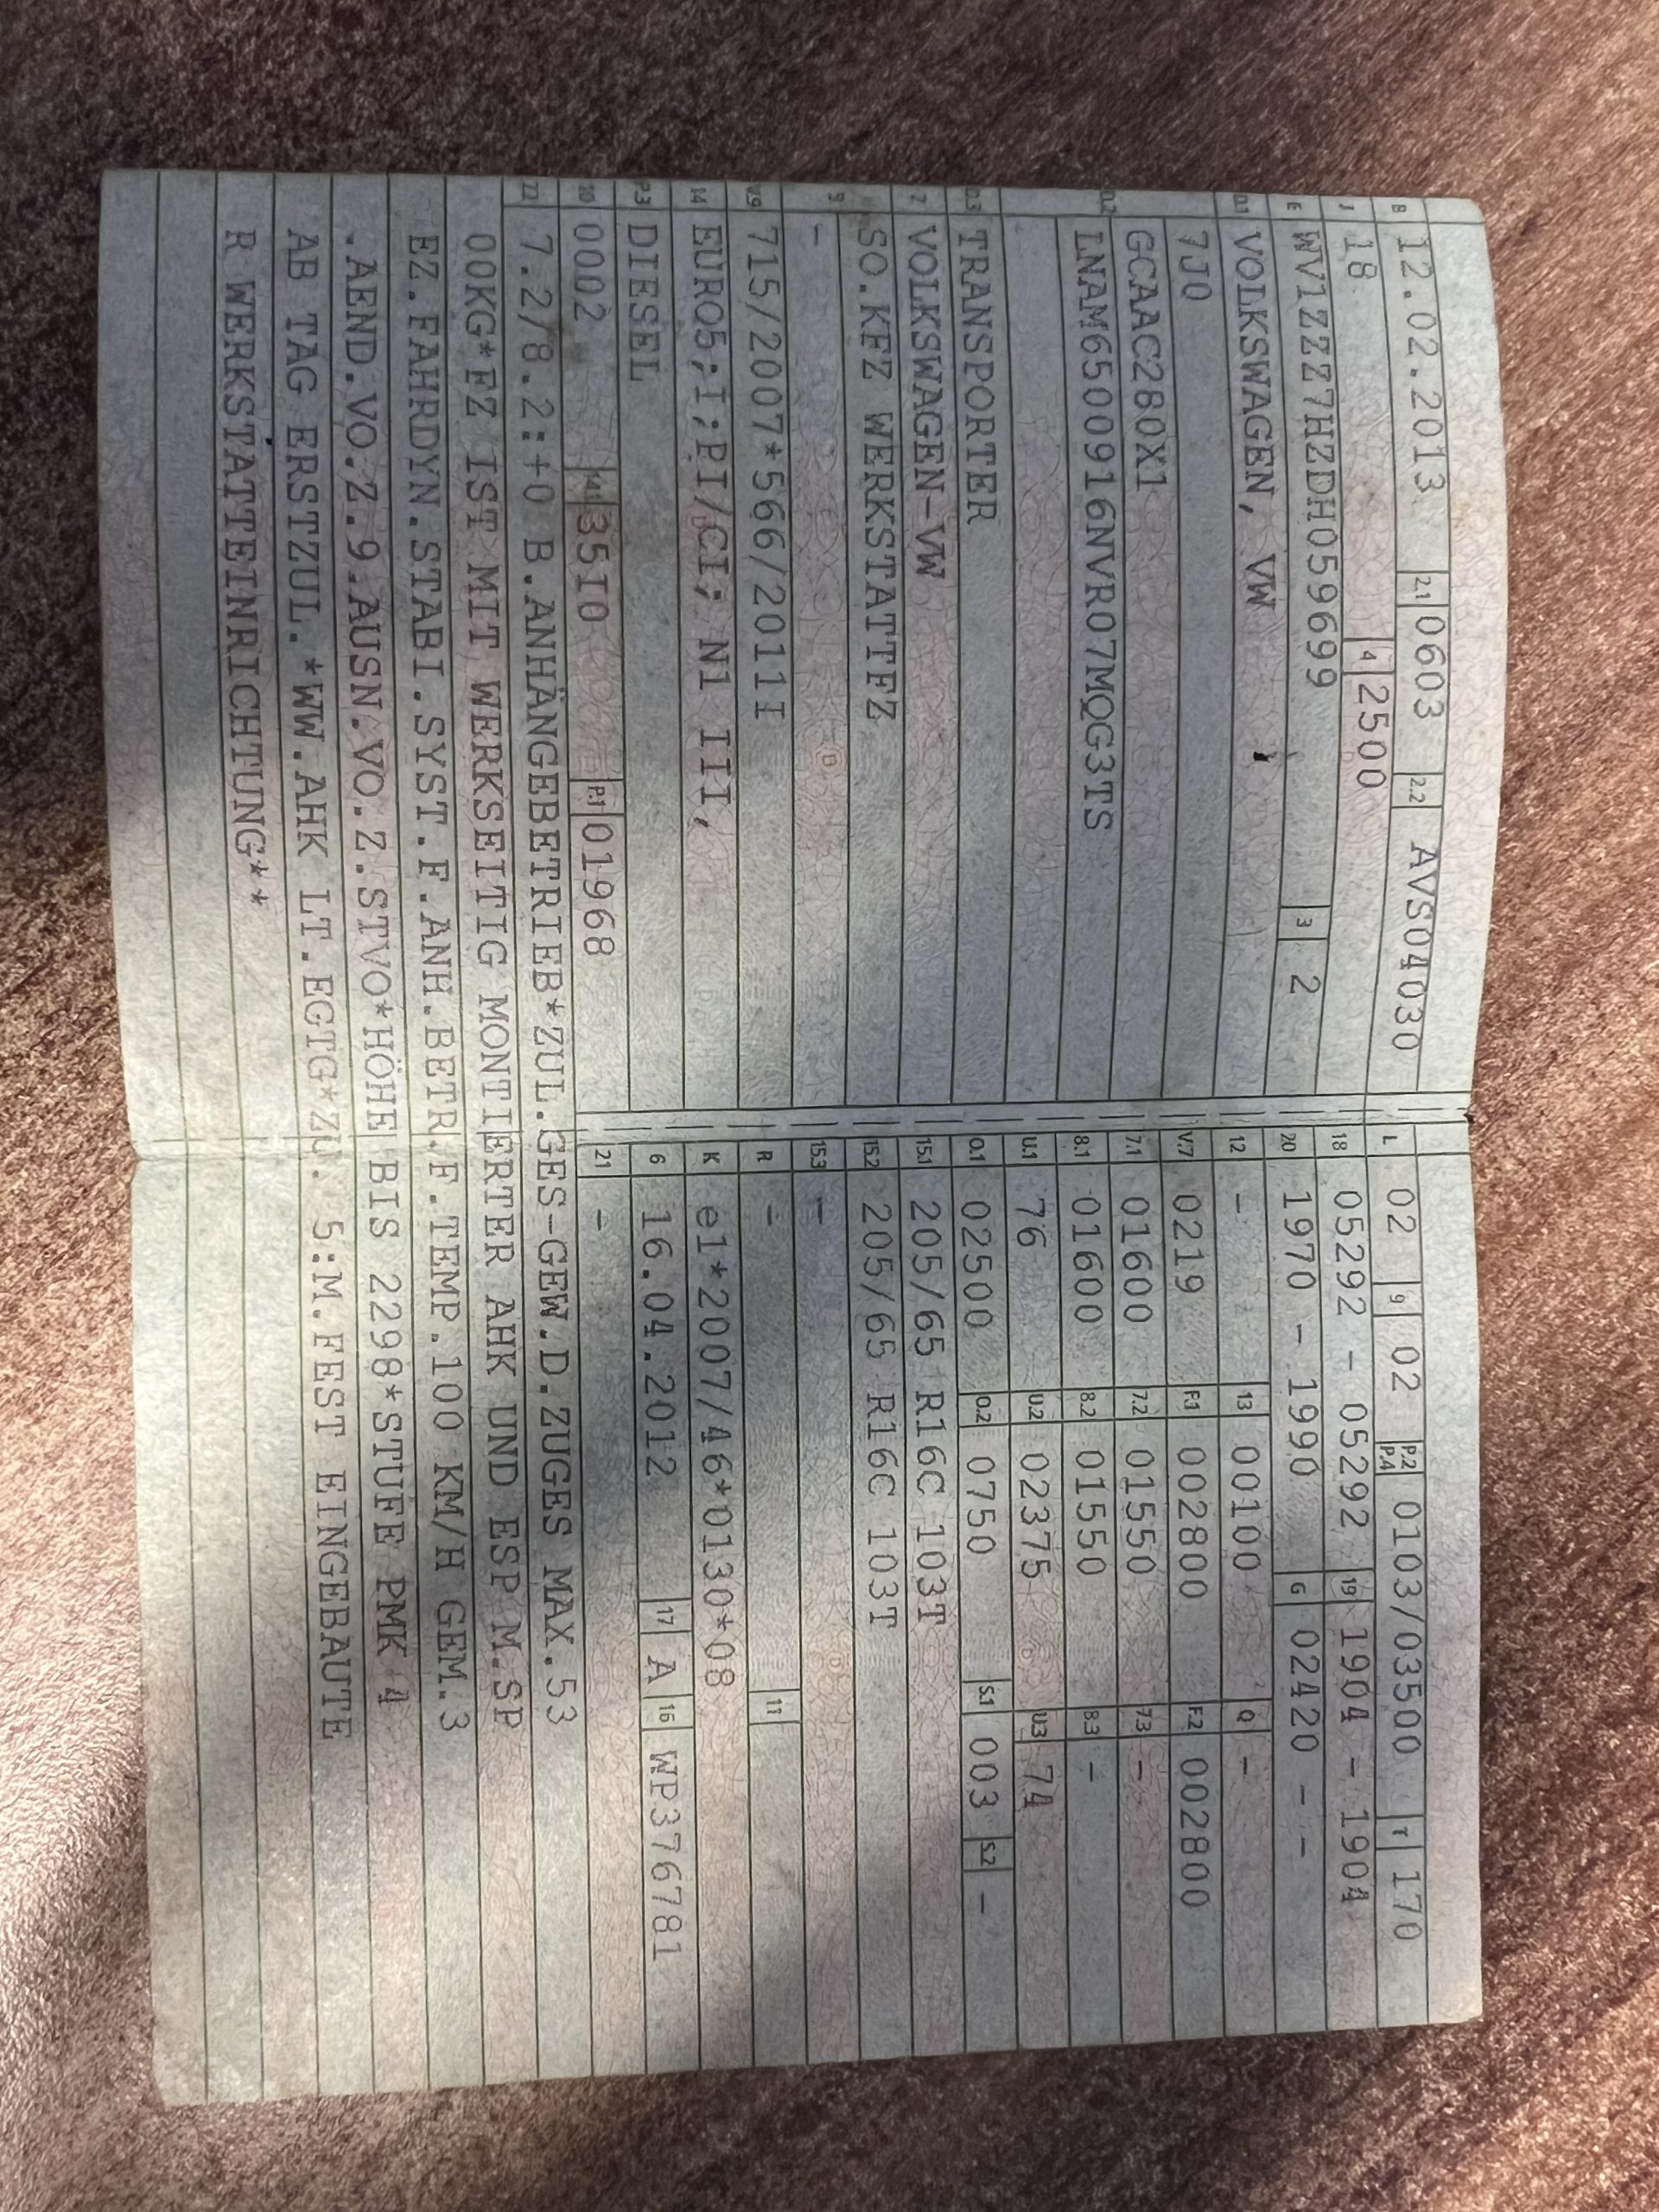 B 12.02.2013 2.1 0603 2.2 AVS04030
J 18 4 2500
E WV1ZZZ7HZDH059699 3 2
D.1 VOLKSWAGEN, VW
7J0
D.2 GCAAC280X1
LNAM6500916NVR07MQG3TS
D.3 TRANSPORTER
2 VOLKSWAGEN-VW
SO.KFZ WERKSTATTFZ
5 -
V.9 715/2007*566/2011I
14 EURO5;I;PI/CI; N1 III,
P.3 DIESEL
10 0002 14.1 35I0 P.1 01968
L 02 9 02 P.2 P.4 0103/03500 T 170
18 05292 - 05292 19 1904 - 1904
20 1970 - 1990 G 02420 - -
12 - 13 00100 Q -
V.7 0219 F.1 002800 F.2 002800
7.1 01600 7.2 01550 7.3 -
8.1 01600 8.2 01550 8.3 -
U.1 76 U.2 02375 U.3 74
O.1 02500 O.2 0750 S.1 003 S.2 -
15.1 205/65 R16C 103T
15.2 205/65 R16C 103T
15.3 -
R - 11
K e1*2007/46*0130*08
6 16.04.2012 17 A 16 WP376781
21 -
22 7.2/8.2:+0 B.ANHÄNGEBETRIEB*ZUL.GES-GEW.D.ZUGES MAX.53
00KG*FZ IST MIT WERKSEITIG MONTIERTER AHK UND ESP M.SP
EZ.FAHRDYN.STABI.SYST.F.ANH.BETR.F.TEMP.100 KM/H GEM.3
.AEND.VO.Z.9.AUSN.VO.Z.STVO*HÖHE BIS 2298*STUFE PMK 4
AB TAG ERSTZUL.*WW.AHK LT.EGTG*ZU. 5:M.FEST EINGEBAUTE
R WERKSTATTEINRICHTUNG**